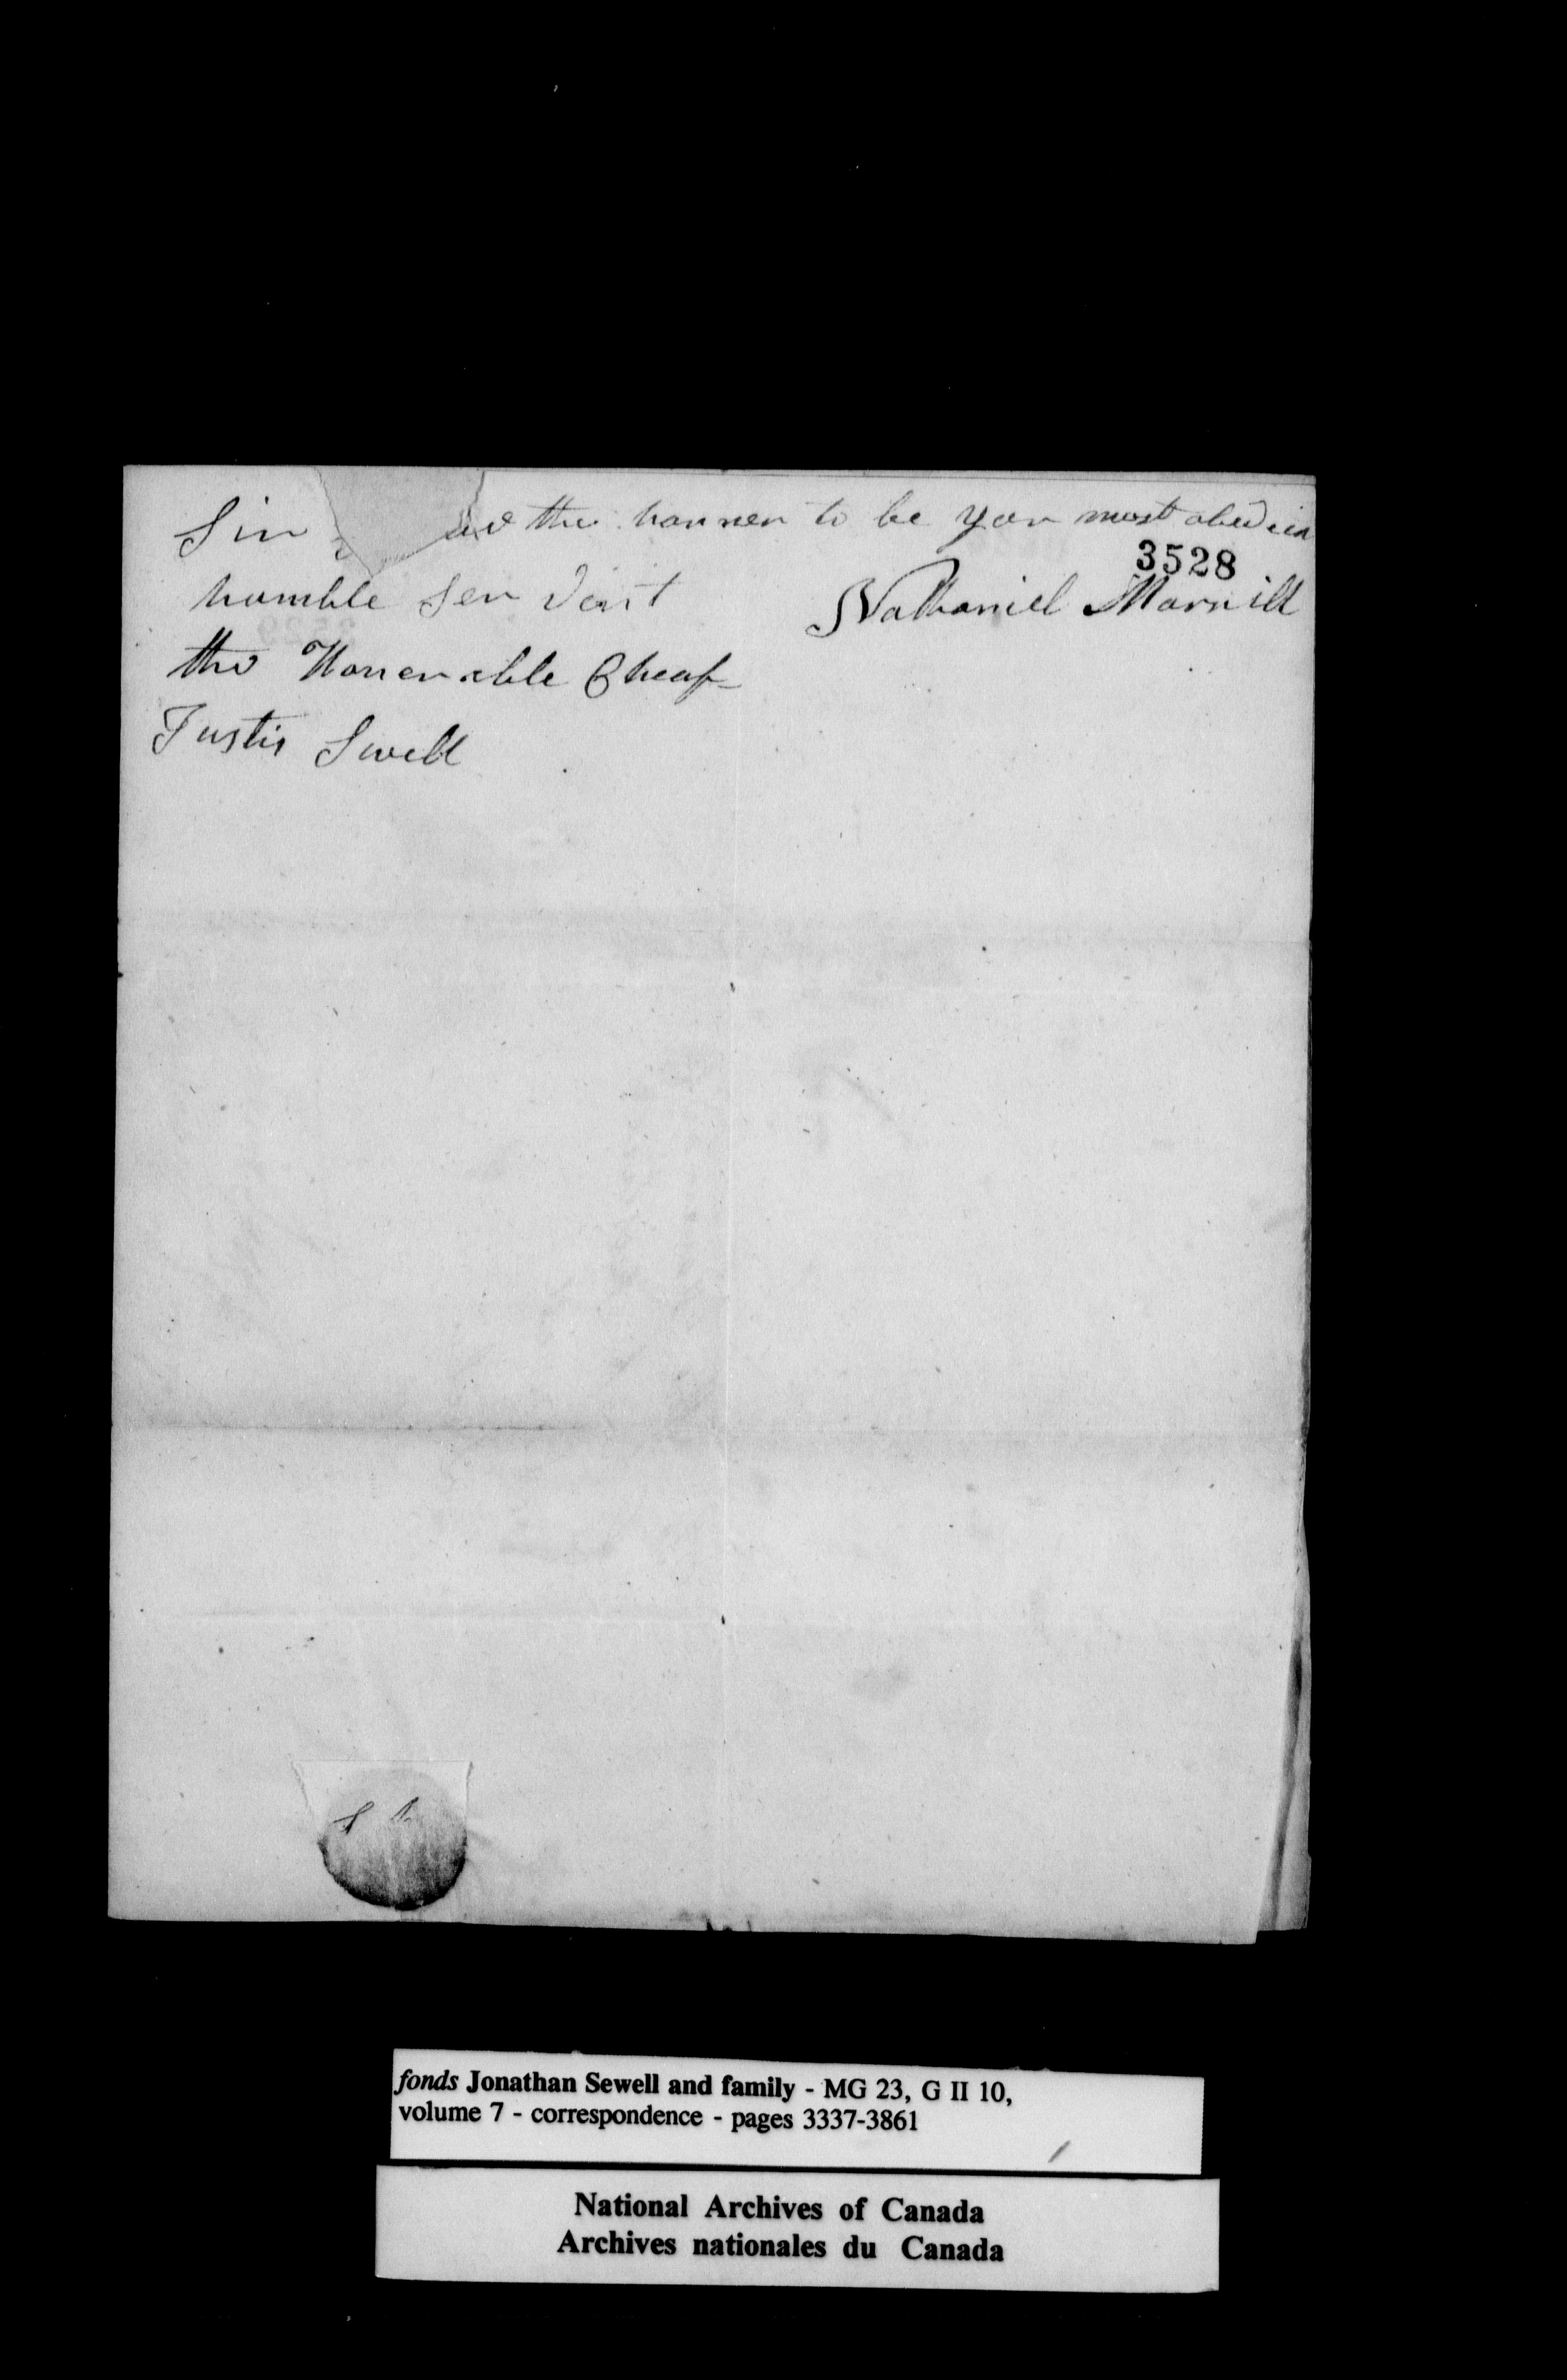 Sir ave the honner to be your most obedien
3528
humble Servant Nathaniel Marrill
the Honerable Cheaf
Justis Swell
fonds Jonathan Sewell and family - MG 23, G II 10,
volume 7 - correspondence - pages 3337-3861
National Archives of Canada
Archives nationales du Canada